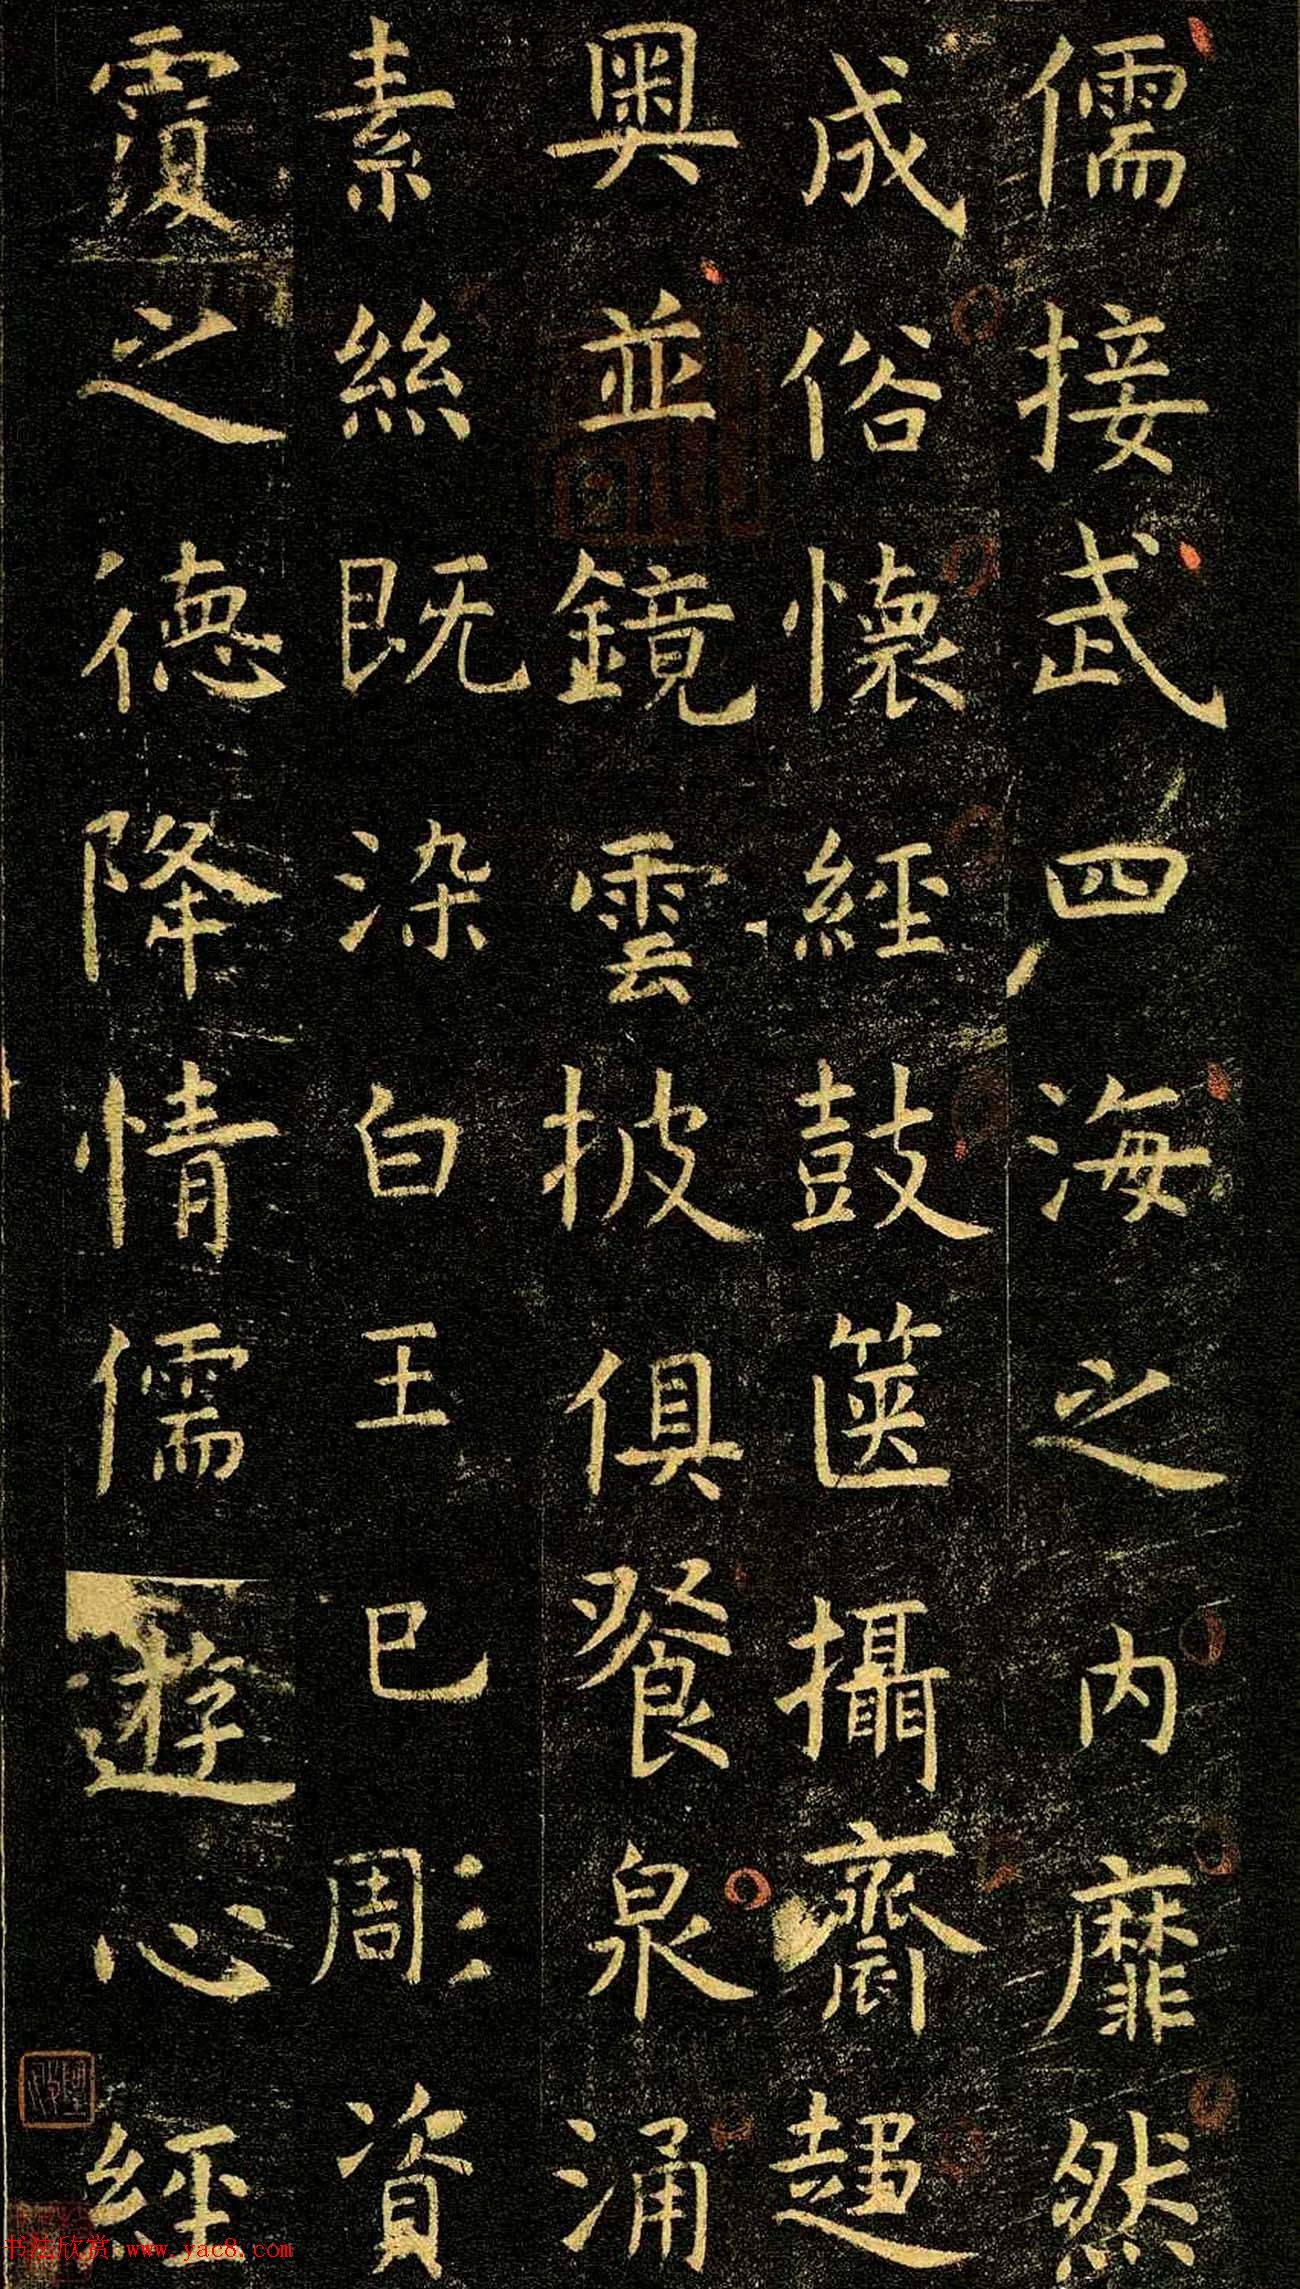 儒接武四海之內靡然
成俗懷經鼓篋攝齋趨
奧並鏡雲披俱餐泉涌
素絲既染白玉已彫資
覆之德降情儒遊心經
书法欣赏 www.yac8.com